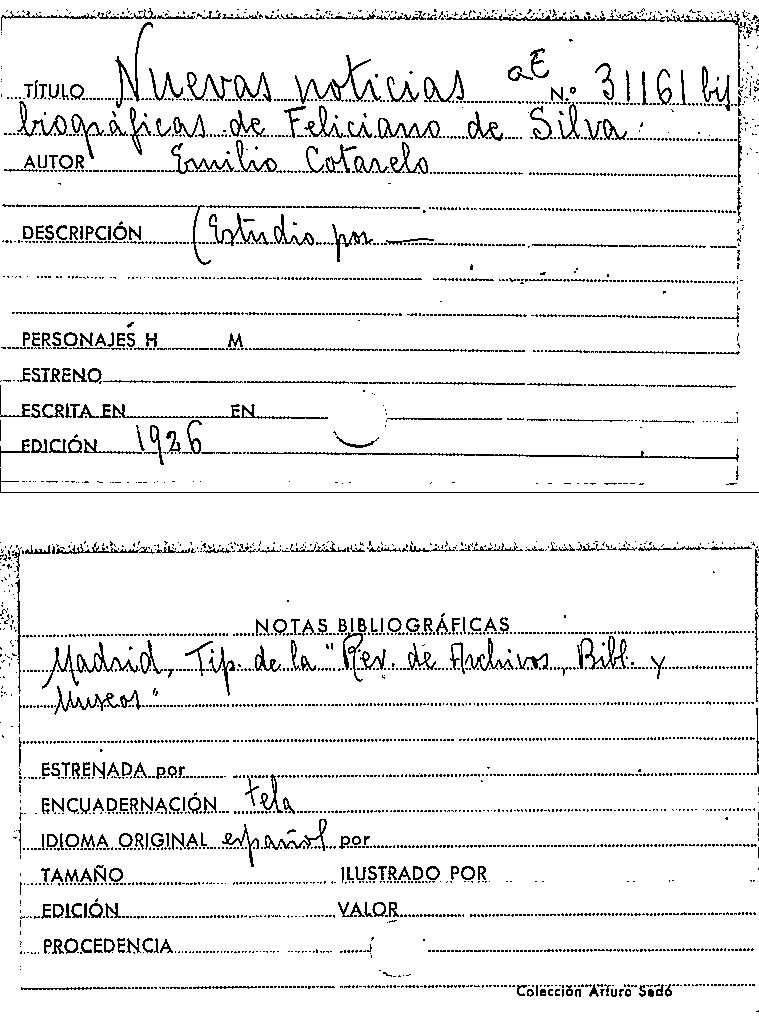 TÍTULO Nuevas noticias aE N.º 31161 bis
biográficas de Feliciano de Silva.
AUTOR Emilio Cotarelo
DESCRIPCIÓN (Estudio por —
PERSONAJES H M
ESTRENO
ESCRITA EN EN
EDICIÓN 1926
NOTAS BIBLIOGRÁFICAS
Madrid, Tip. de la "Rev. de Archivos, Bibl. y
Museos"
ESTRENADA por
ENCUADERNACIÓN tela
IDIOMA ORIGINAL español por
TAMAÑO ILUSTRADO POR
EDICIÓN VALOR
PROCEDENCIA
Colección Arturo Sedó